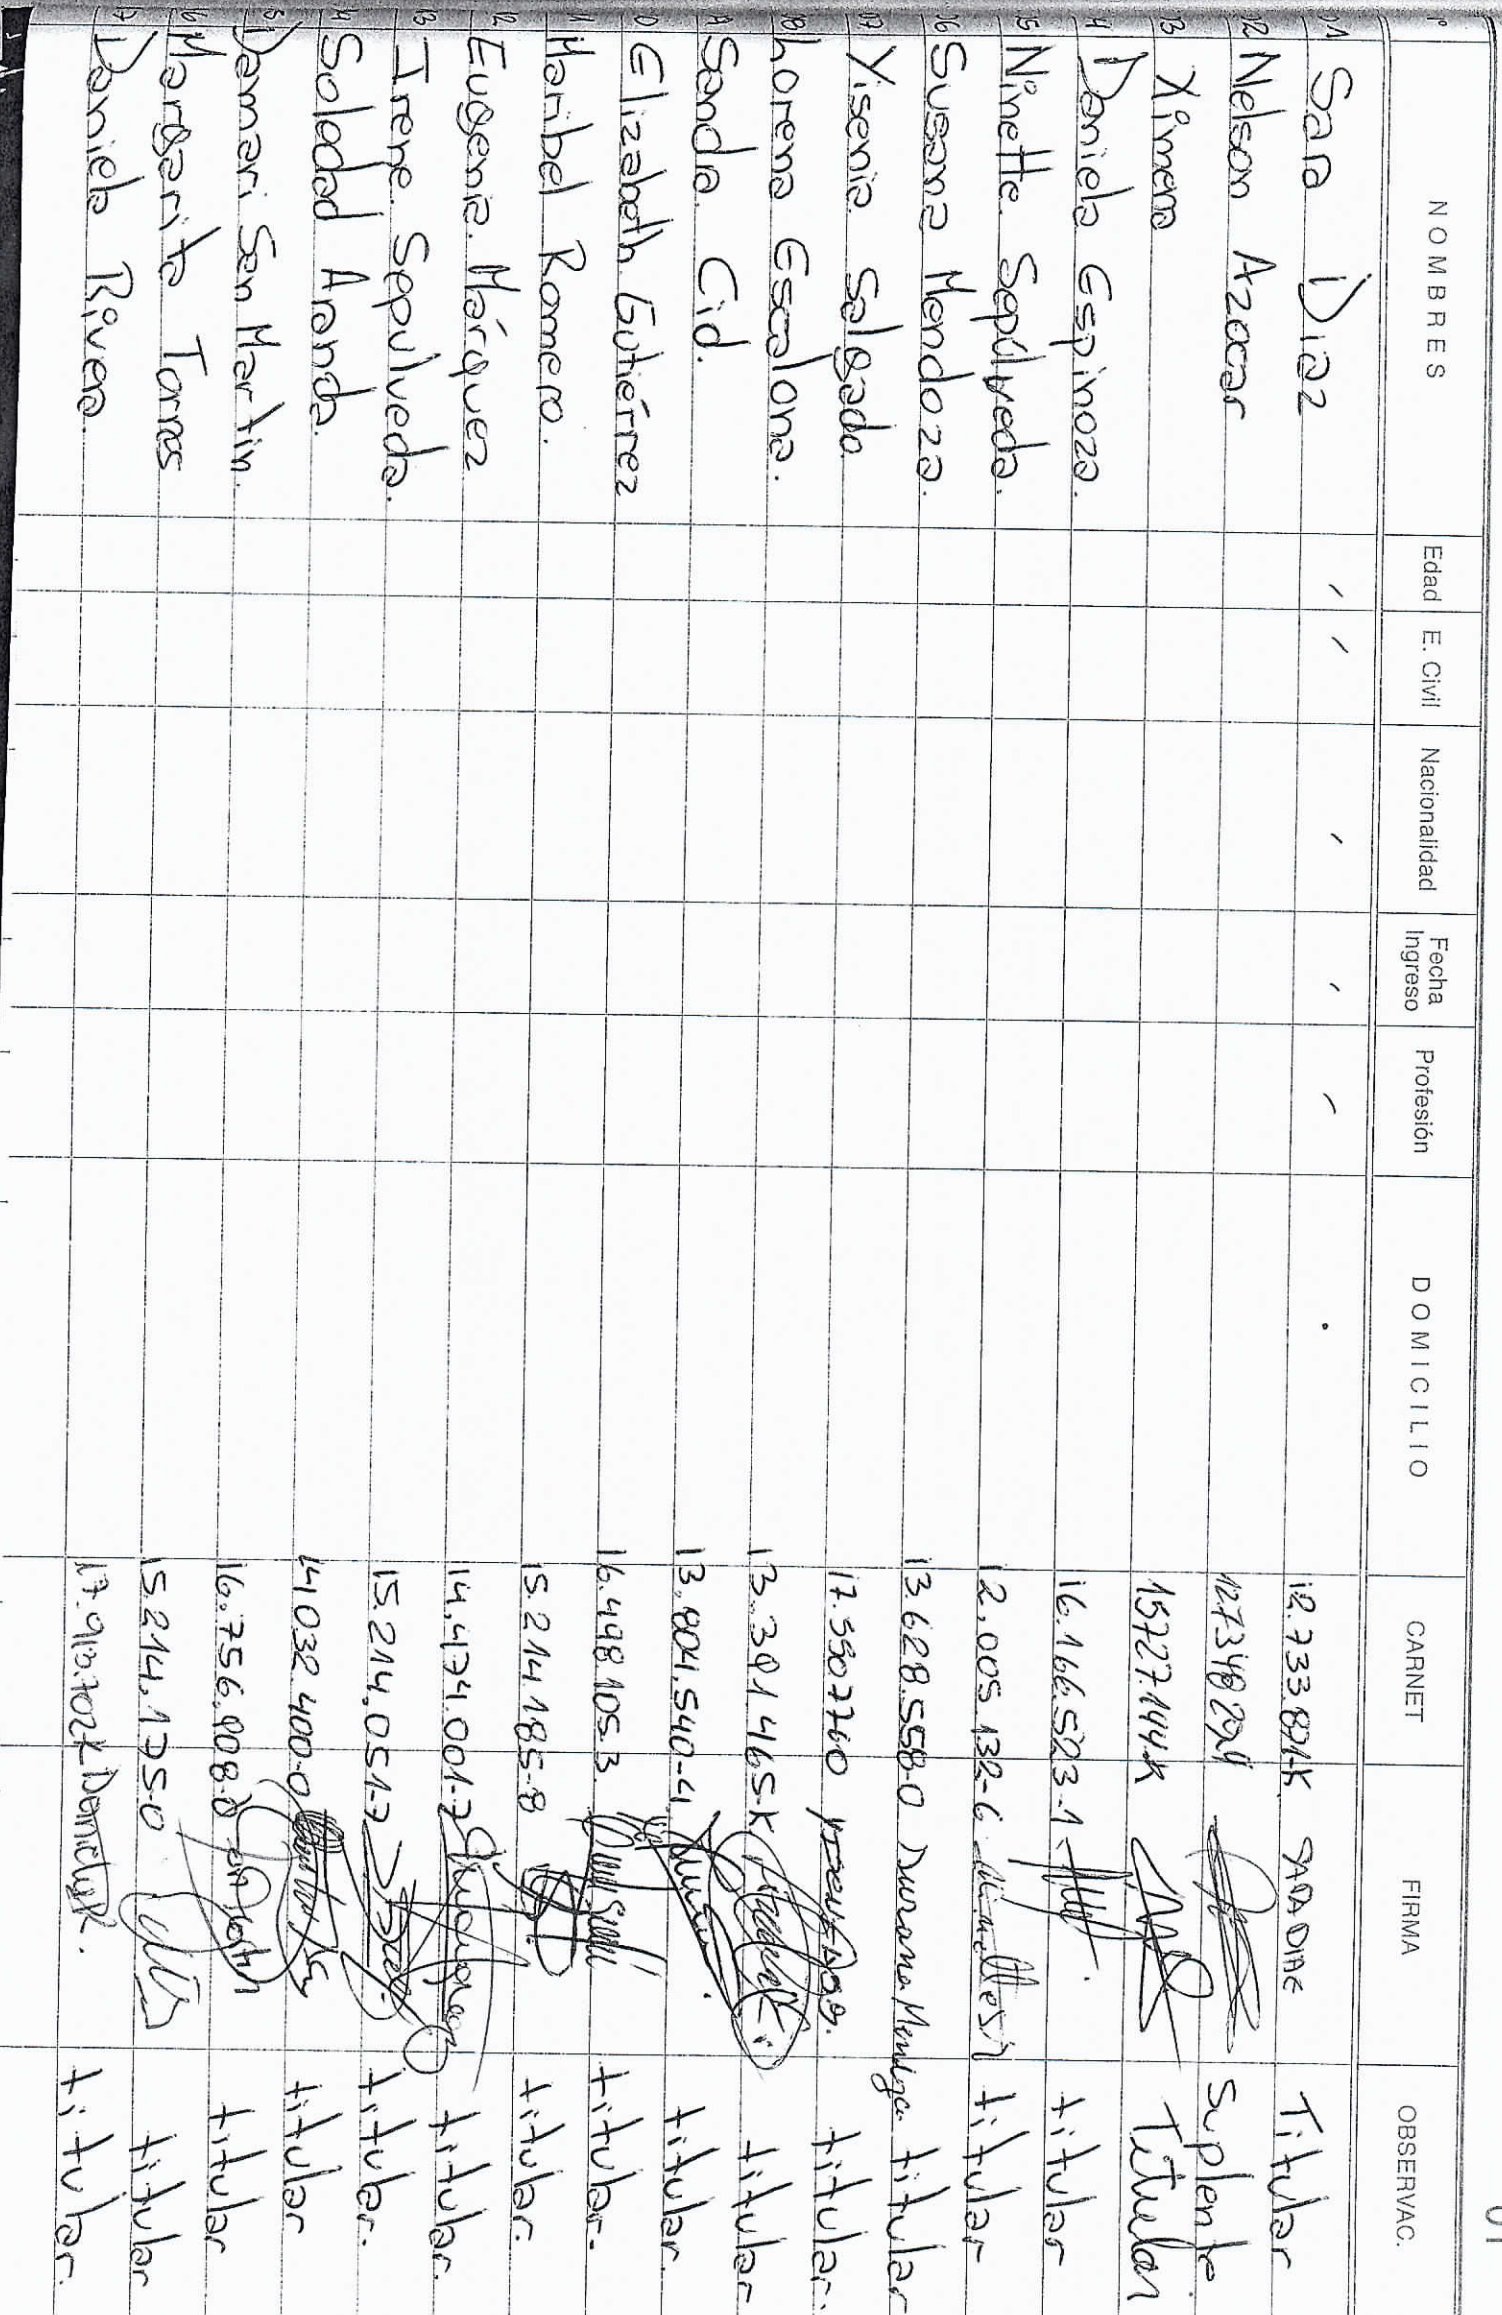 01
Nº NOMBRES Edad E. Civil Nacionalidad Fecha Ingreso Profesión DOMICILIO CARNET FIRMA OBSERVAC.
01 Sara Diaz 12.733.891-K SARA DIAZ Titular
02 Nelson Azocar Suplente
03 Ximena 15727.144-K Titular
04 Daniela Espinoza. 16.166.523-1 titular
05 Ninette Sepúlveda. 12.005.132-6 titular
06 Susana Mendoza. 13.628.558-0 Susana Mendoza titular
07 Yisenia Salgado. 17.5507760 titular.
08 Lorena Escalona. 13.391.465-K titular
09 Sandra Cid. 13.804.540-4 titular.
10 Elizabeth Gutiérrez 16.498.105.3. titular.
11 Maribel Romero. 15.214.185-8 titular.
12 Eugenia Márquez 14.474.001-7 titular.
13 Irene Sepulveda. 15.214.051-7 titular.
14 Soledad Aranda. 14032.400-0 titular
15 Damari San Martin. 16.756.908-0 titular
16 Margarita Torres 15.214.175-0 titular
17 Daniela Rivera. titular.